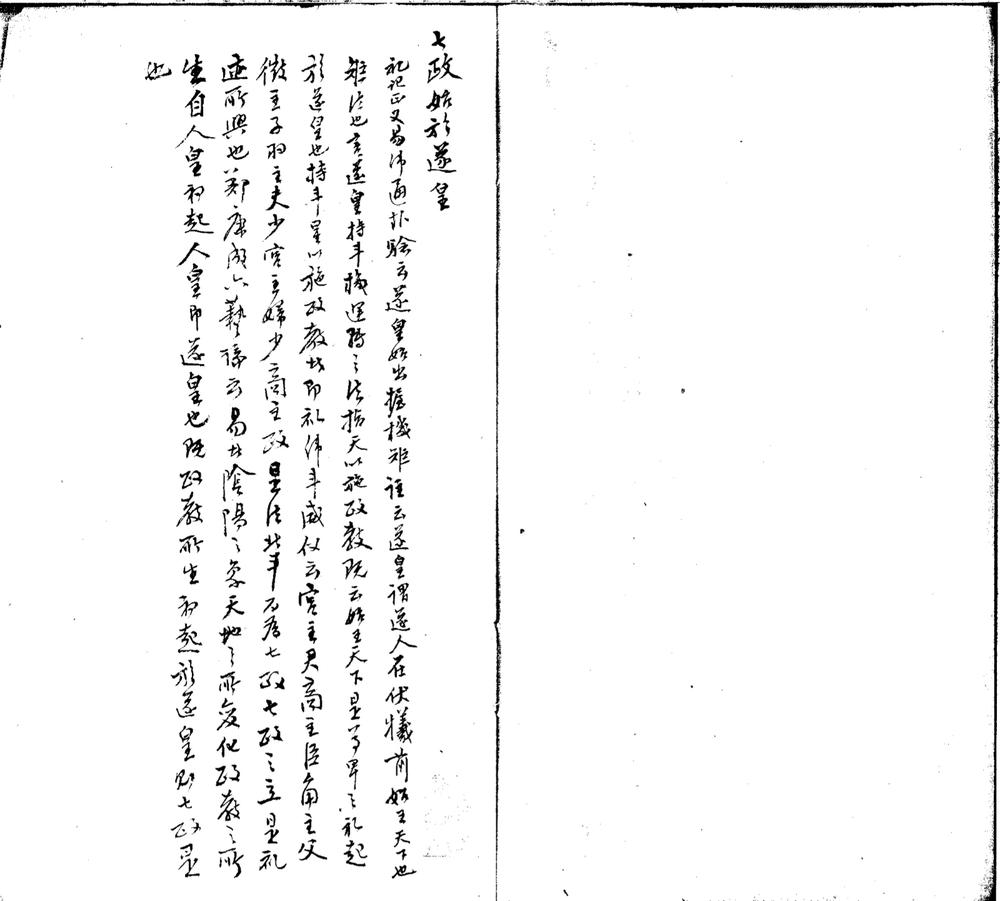 七政始於遂皇
礼記正义易緯通卦驗云遂皇始出握機矩註云遂皇謂遂人在伏犧前始王天下也
矩法也言遂皇持斗機運轉之法指天以施政教既云始王天下是尊卑之礼起
於遂皇也持斗星以施政教者即礼緯斗威仪云宮主君商主臣角主父
徵主子羽主夫少宮主婦少商主政是法北斗而为七政七政之立是礼
迹所興也鄭康成六藝論云易者陰陽之象天地之所變化政教之所
生自人皇初起人皇即遂皇也既政教所生初起於遂皇則七政是
也